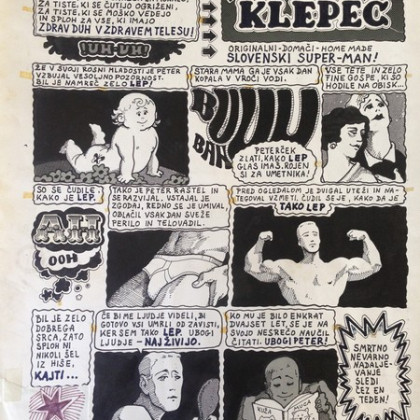 ZA TISTE, KI SE ČUTIJO OGROŽENI,
ZA TISTE, KI SE MOŠKO VEDEJO
IN SPLOH ZA VSE, KI IMAJO
ZDRAV DUH V ZDRAVEM TELESU!
UH-UH!
KLEPEC
ORIGINALNI-DOMAČI-HOME MADE
SLOVENSKI SUPER-MAN!
ŽE V SVOJI ROSNI MLADOSTI JE PETER
VZBUJAL VESOLJNO POZORNOST.
BIL JE NAMREČ ZELO LEP!
STARA MAMA GA JE VSAK DAN
KOPALA V VROČI VODI.
BUUUU
BAH
PETERČEK
ZLATI, KAKO LEP
GLAS IMAŠ, ROJEN
SI ZA UMETNIKA!
VSE TETE IN ZELO
TINE GOSPE, KI SO
HODILE NA OBISK...
SO SE ČUDILE,
KAKO JE LEP.
AH
OOH
TAKO JE PETER RASTEL IN
SE RAZVIJAL. VSTAJAL JE
ZGODAJ, REDNO SE JE UMIVAL,
OBLAČIL VSAK DAN SVEŽE
PERILO IN TELOVADIL.
PRED OGLEDALOM JE DVIGAL UTEŽI IN NA-
TEGOVAL VZMETI. ČUDIL SE JE, KAKO DA JE
TAKO LEP.
BIL JE ZELO
DOBREGA
SRCA, ZATO
SPLOH NI
NIKOLI ŠEL
IZ HIŠE,
KAJTI...
ČE BI ME LJUDJE VIDELI, BI
GOTOVO VSI UMRLI OD ZAVISTI,
KER SEM TAKO LEP. UBOGI
LJUDJE - NAJ ŽIVIJO.
KO MU JE BILO ENKRAT
DVAJSET LET, SE JE NA
SVOJO NESREČO NAUČIL
ČITATI. UBOGI PETER!
SMRTNO
NEVARNO
NADALJE-
VANJE
SLEDI
ČEZ EN
TEDEN!